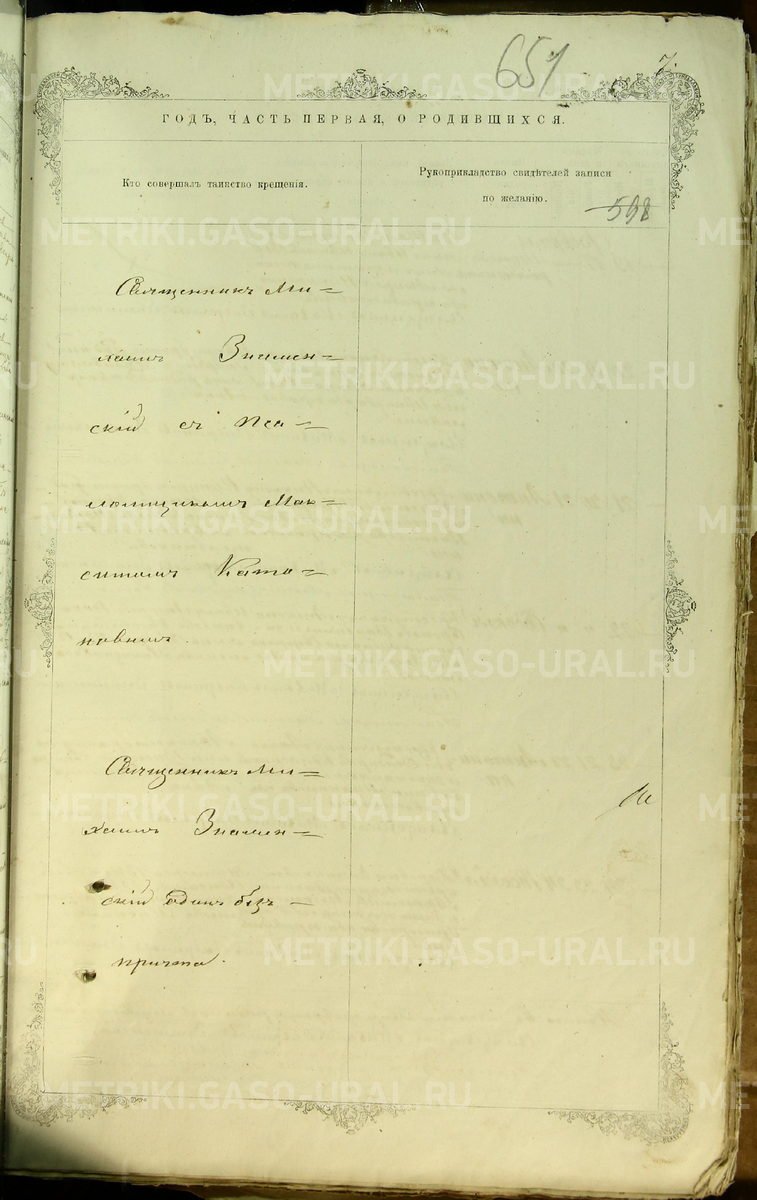 651
7.
ГОДЪ, ЧАСТЬ ПЕРВАЯ, О РОДИВШИХСЯ.
Кто совершалъ таинство крещенія.
Рукоприкладство свидѣтелей записи
по желанію.
598
Священникъ Ми=
хаилъ Знамен=
скій съ Пса=
ломщикомъ Мак=
симомъ Ката=
новымъ.
Священникъ Ми=
хаилъ Знамен=
скій одинъ безъ -
причта.
METRIKI.GASO-URAL.RU